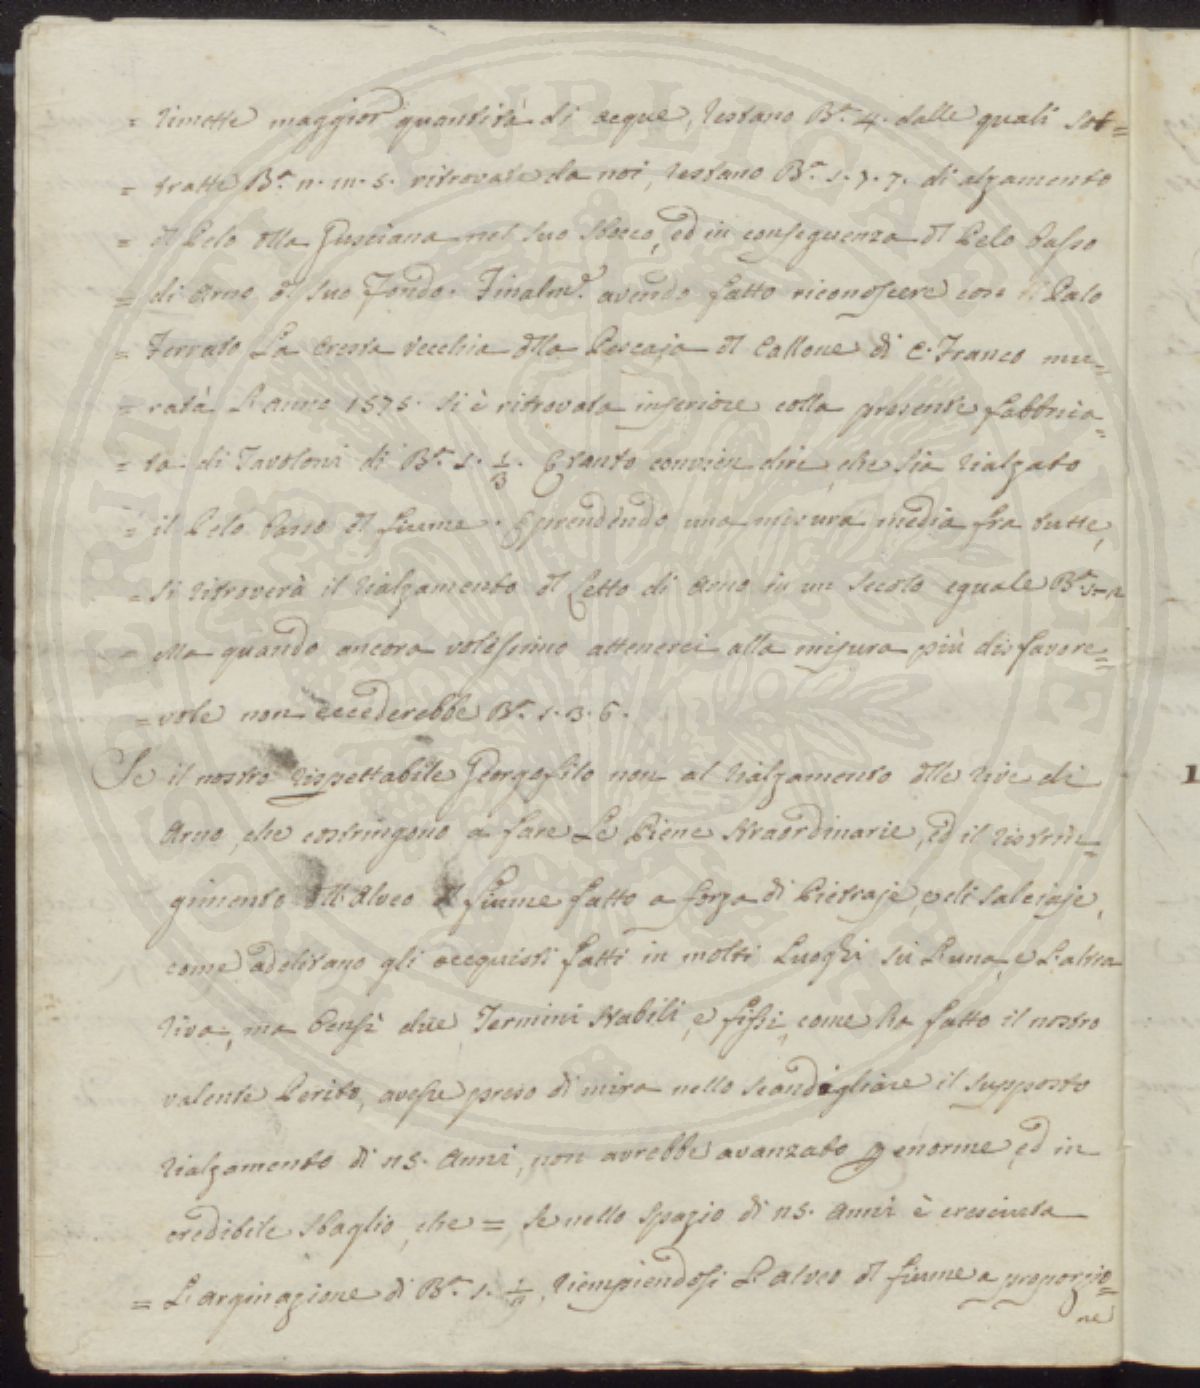 = rimette maggior quantità di acque, restano B.ª 4. dalle quali sot=
= tratte B.ª 11. 111. 5. ritrovate da noi, restano B.ª 1. 7. 7. di alzamento
= dl Pelo dlla Gusciana nel suo sbocco, ed in conseguenza dl Pelo basso
= di Arno, dl suo Fondo. Finalm.e avendo fatto riconoscere con il Palo
= Ferrato La Cresta vecchia dlla Pescaja dl Callone di C. Franco mu=
= rata L'anno 1575. si è ritrovata inferiore colla presente fabbrica=
= ta di Tavoloni di B.ª 1. 1/3. E tanto convien dire, che sia rialzato
= il Pelo basso dl fiume. E prendendo una misura media fra tutte,
= si ritroverà il rialzamento dl Letto di Arno in un secolo eguale B.ª
= Ma quando ancora volessimo attenerci alla misura più disfavore=
= vole non eccederebbe B.ª 1. 3. 6.
Se il nostro rispettabile Georgofilo non al rialzamento dlle rive di
Arno, che costringono a fare Le Piene straordinarie, ed il ristrin=
gimento dll'alveo dl fiume fatto a forza di Pietraje, e di salciaje,
come additano gli acquisti fatti in molti Luoghi su L'una, e L'altra
riva, ma bensì due Termini stabili, e fissi, come ha fatto il nostro
valente Perito, avesse preso di mira nello scandigliare il supposto
rialzamento di 115. Anni, non avrebbe avanzato enorme, ed in
credibile sbaglio, che = se nello spazio di 115. Anni è cresciuta
= L'arginazione di B.ª 1. riempiendosi L'alveo dl fiume a proporzio=
ne
SERITAE PVBLICAE
1